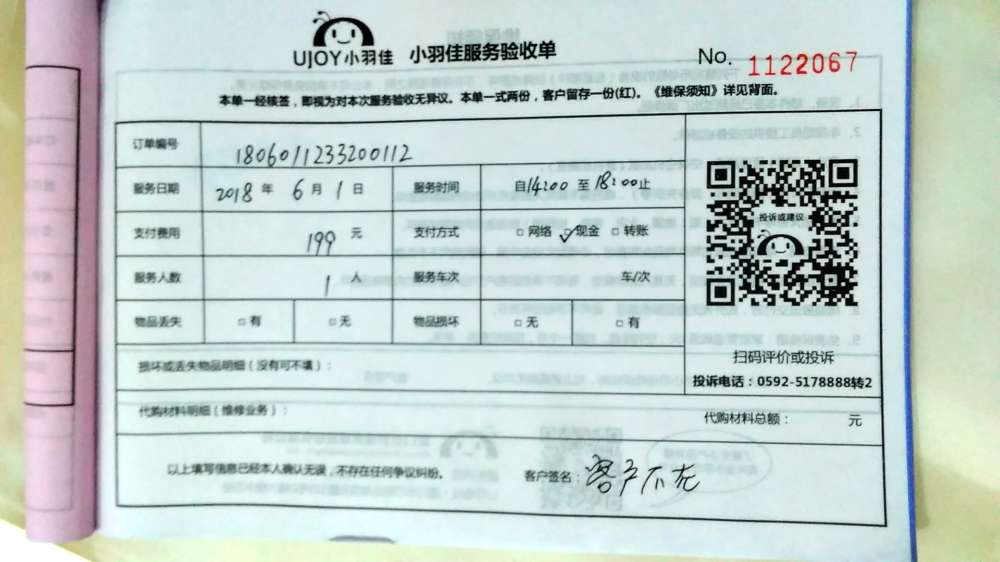 UJOY小羽佳 小羽佳服务验收单
No. 1122067
本单一经核签，即视为对本次服务验收无异议。本单一式两份，客户留存一份(红)。《维保须知》详见背面。
订单编号 1806011233200112
服务日期 2018 年 6 月 1 日 服务时间 自14:00 至 18:00止
支付费用 199 元 支付方式 □ 网络 ☑ 现金 □ 转账
服务人数 1 人 服务车次 车/次
物品丢失 □ 有 □ 无 物品损坏 □ 无 □ 有
投诉或建议
扫码评价或投诉
投诉电话：0592-5178888转2
损坏或丢失物品明细（没有可不填）：
代购材料明细（维修业务）： 代购材料总额： 元
以上填写信息已经本人确认无误，不存在任何争议纠纷。 客户签名：客户不在